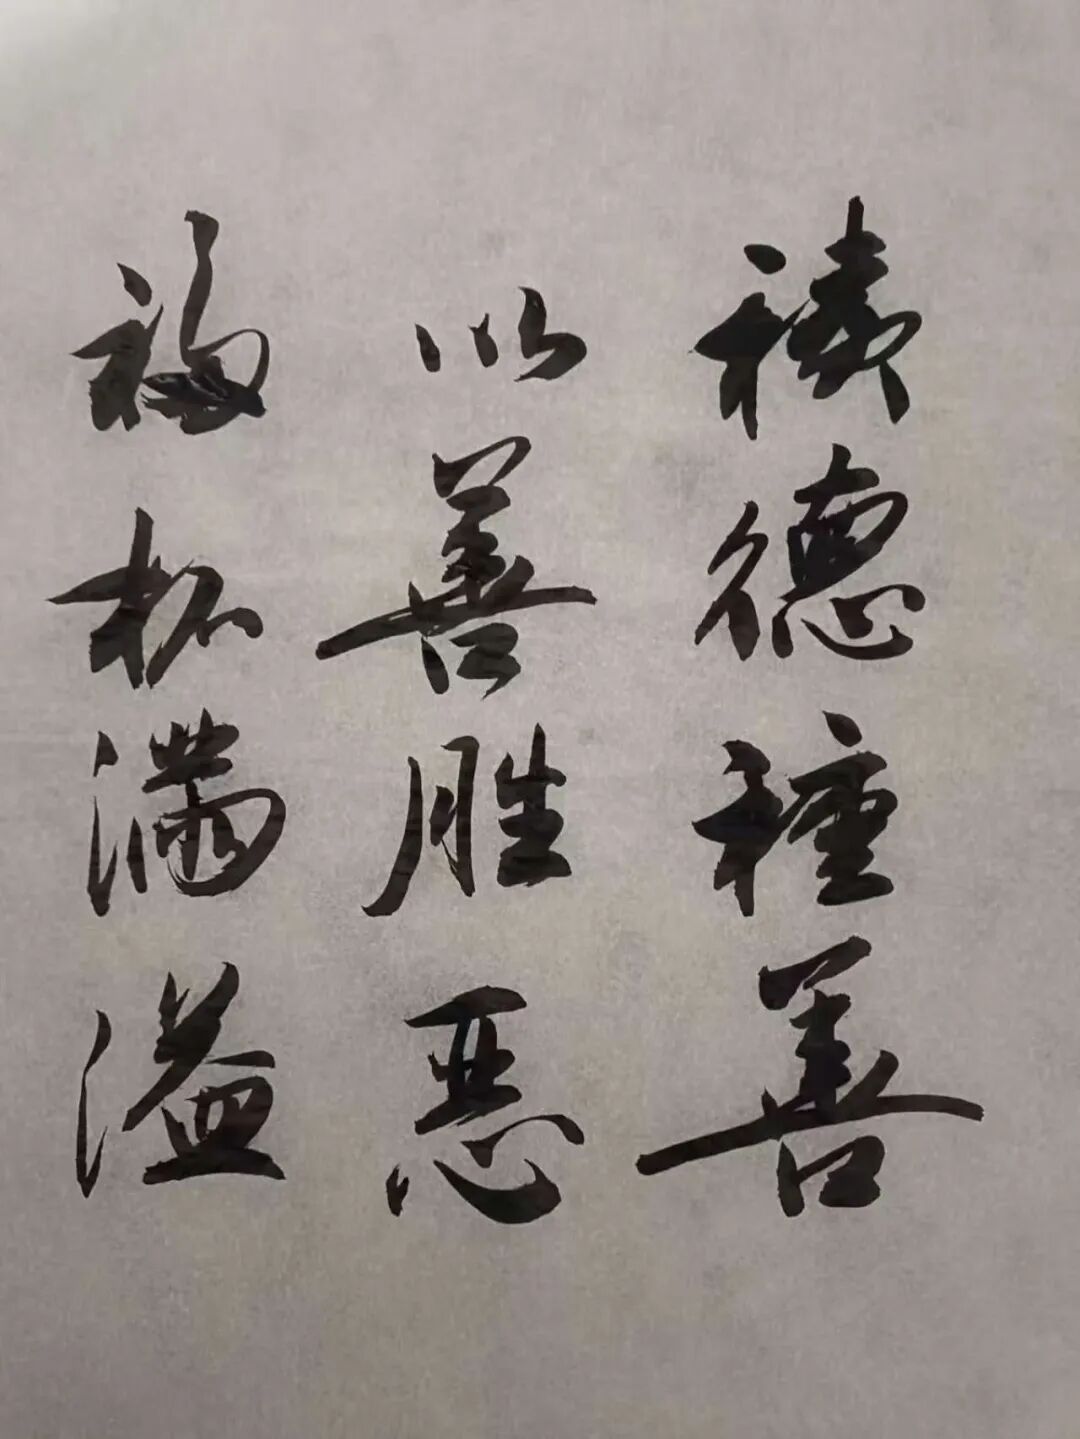 積德種善
以善胜恶
福杯滿溢